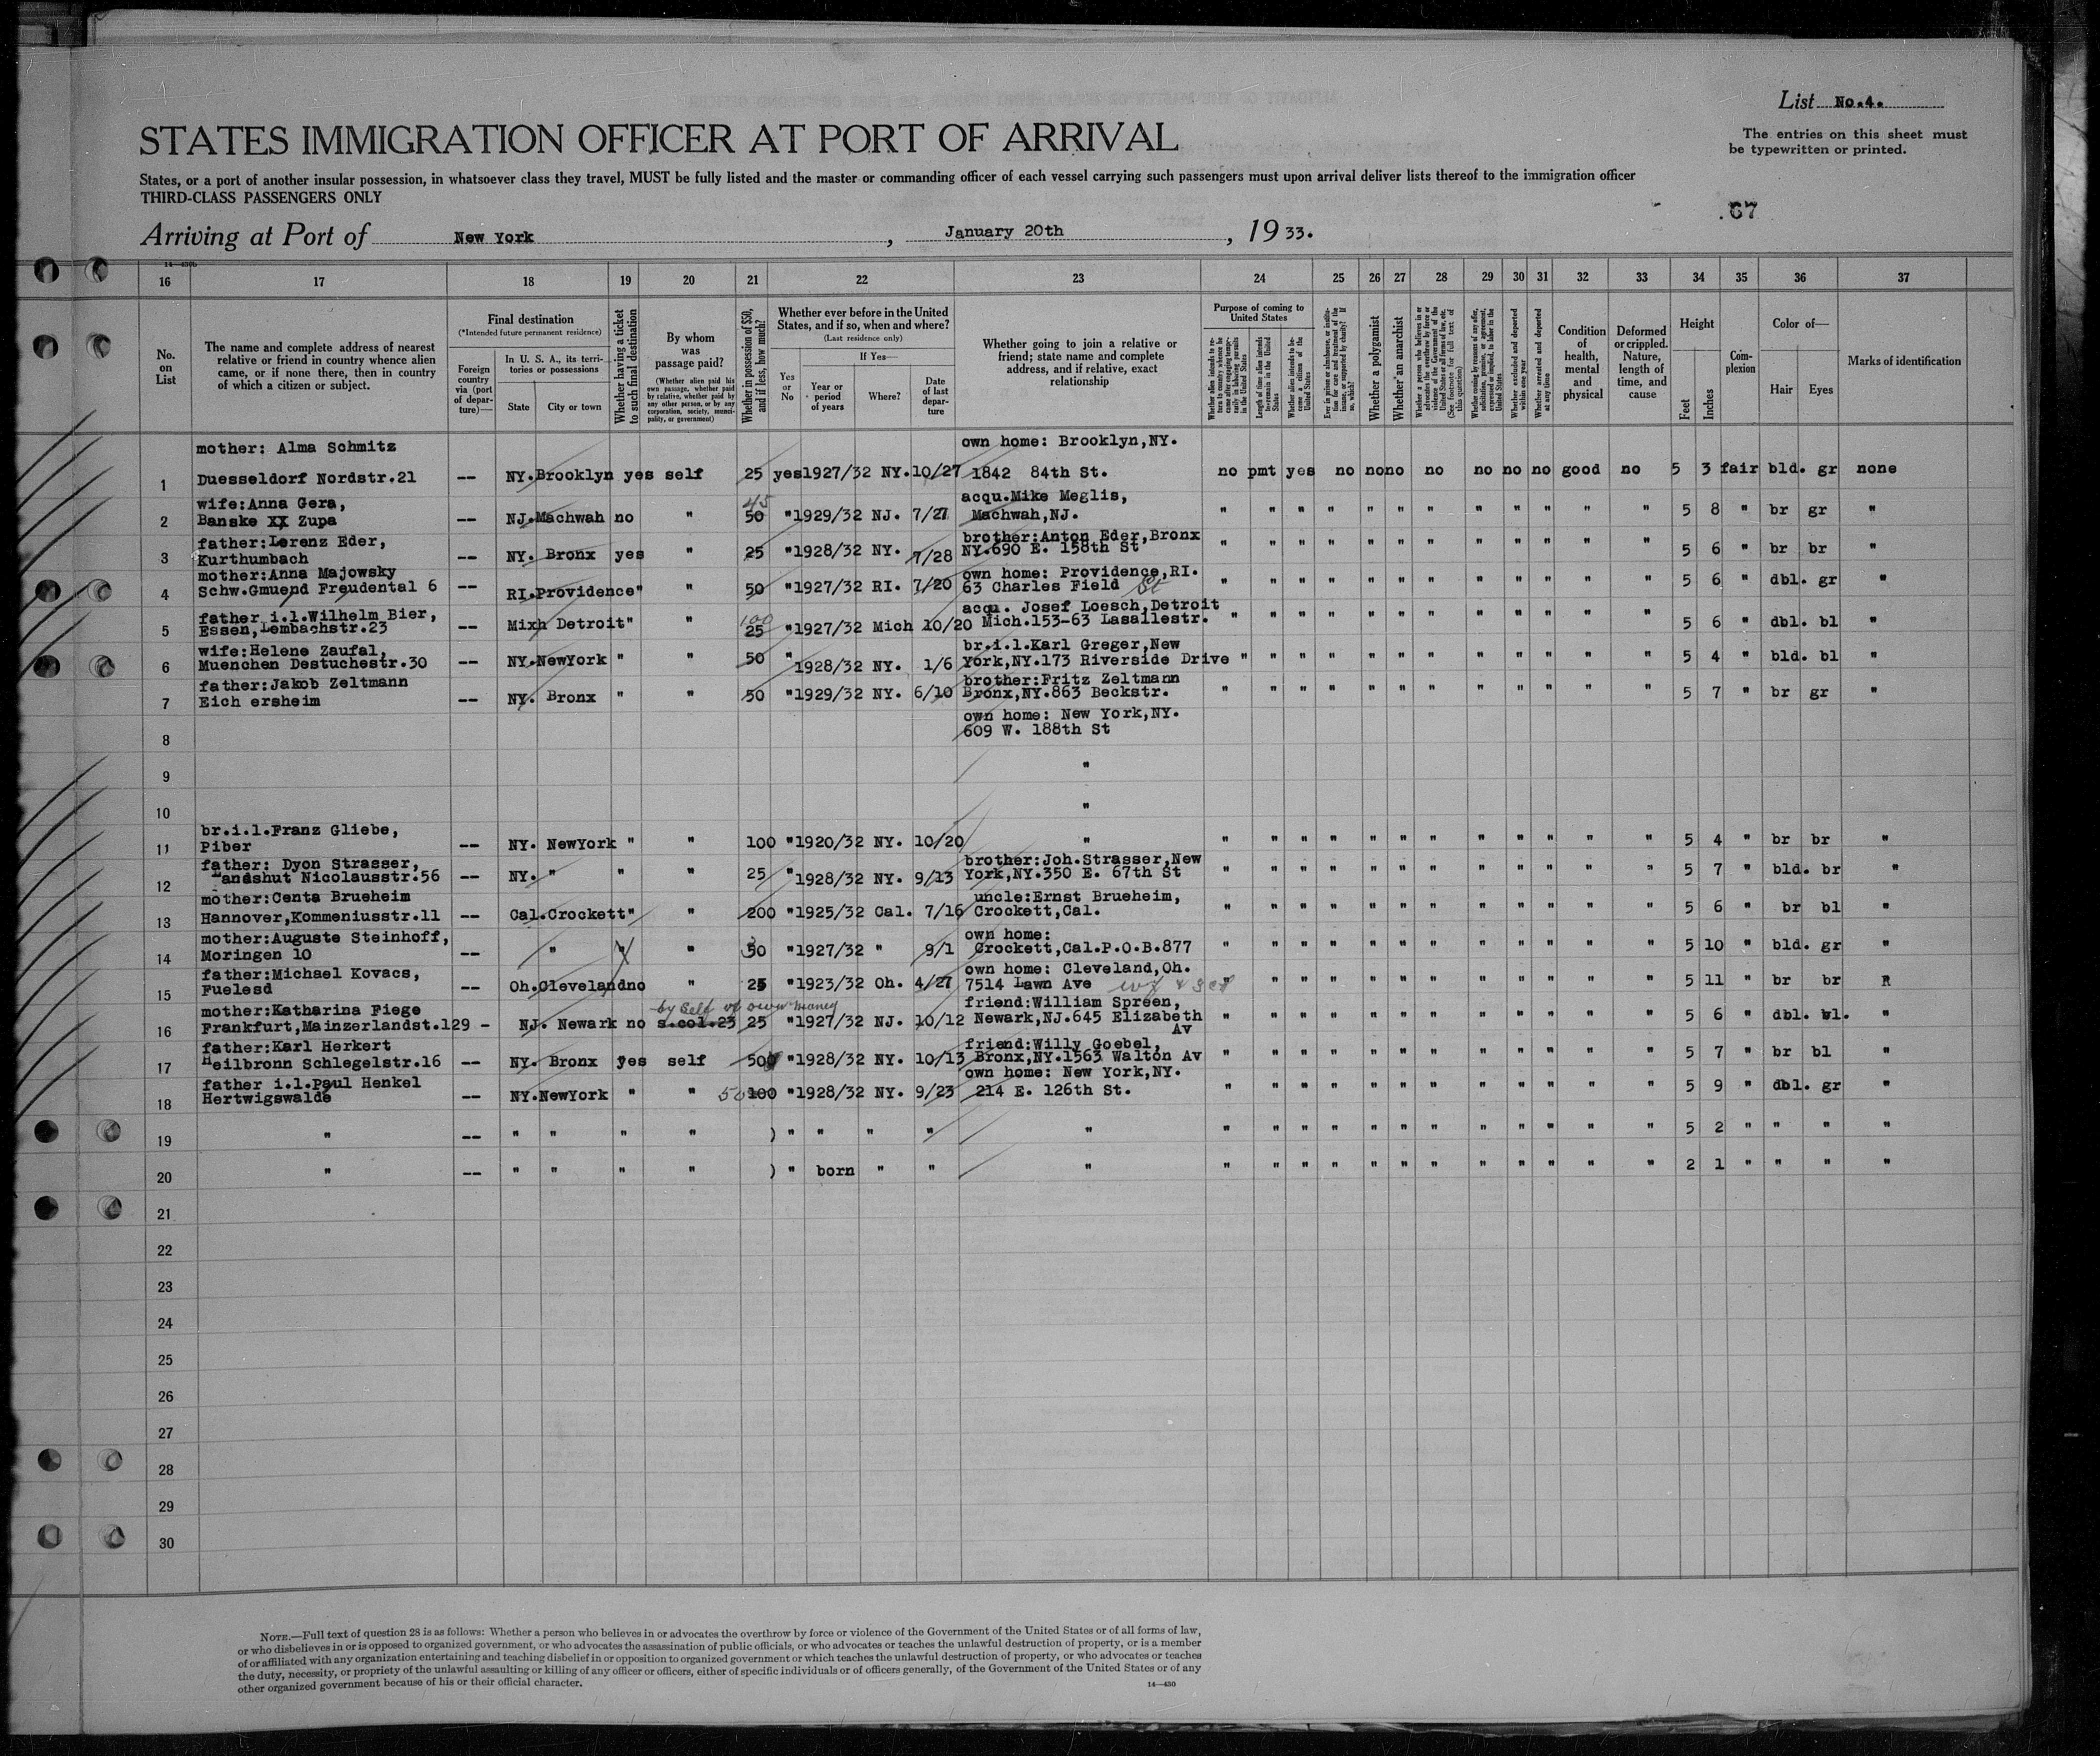 List No.4.
STATES IMMIGRATION OFFICER AT PORT OF ARRIVAL
The entries on this sheet must
be typewritten or printed.
States, or a port of another insular possession, in whatsoever class they travel, MUST be fully listed and the master or commanding officer of each vessel carrying such passengers must upon arrival deliver lists thereof to the immigration officer
THIRD-CLASS PASSENGERS ONLY
67
Arriving at Port of New York, January 20th, 1933.
16 17 18 19 20 21 22 23 24 25 26 27 28 29 30 31 32 33 34 35 36 37
No. on List
The name and complete address of nearest relative or friend in country whence alien came, or if none there, then in country of which a citizen or subject.
Final destination
(*Intended future permanent residence)
Foreign country via (port of departure)—
In U. S. A., its territories or possessions
State
City or town
Whether having a ticket to such final destination
By whom was passage paid?
(Whether alien paid his own passage, whether paid by relative, whether paid by any other person, or by any corporation, society, municipality, or government)
Whether in possession of $50, and if less, how much?
Whether ever before in the United States, and if so, when and where?
(Last residence only)
If Yes—
Yes or No
Year or period of years
Where?
Date of last departure
Whether going to join a relative or friend; state name and complete address, and if relative, exact relationship
Purpose of coming to United States
Whether a polygamist
Whether an anarchist
Condition of health, mental and physical
Deformed or crippled. Nature, length of time, and cause
Height
Feet
Inches
Complexion
Color of—
Hair
Eyes
Marks of identification
mother: Alma Schmitz own home: Brooklyn,NY.
1 Duesseldorf Nordstr.21 -- NY.Brooklyn yes self 25 yes1927/32 NY.10/27 1842 84th St. no pmt yes no nono no no no no good no 5 3 fair bld. gr none
wife:Anna Gera, 45 acqu.Mike Meglis,
2 Banske XX Zupa -- NJ.Machwah no " 50 "1929/32 NJ. 7/27 Machwah,NJ. " " " " " " " " " " " " 5 8 " br gr "
father:Lorenz Eder, brother:Anton Eder,Bronx
3 Kurthumbach -- NY. Bronx yes " 25 "1928/32 NY. 7/28 NY.690 E. 158th St " " " " " " " " " " " " 5 6 " br br "
mother:Anna Majowsky own home: Providence,RI.
4 Schw.Gmuend Freudental 6 -- RI.Providence" " 50 "1927/32 RI. 7/20 63 Charles Field St " " " " " " " " " " " " 5 6 " dbl. gr "
father i.l.Wilhelm Bier, 100 acqu. Josef Loesch,Detroit
5 Essen,Lembachstr.23 -- Mixh Detroit" " 25 "1927/32 Mich 10/20 Mich.153-63 Lasallestr. " " " " " " " " " " " " 5 6 " dbl. bl "
wife:Helene Zaufal, br.i.l.Karl Greger,New
6 Muenchen Destuchestr.30 -- NY.NewYork " " 50 "1928/32 NY. 1/6 York,NY.173 Riverside Drive " " " " " " " " " " " " 5 4 " bld. bl "
father:Jakob Zeltmann brother:Fritz Zeltmann
7 Eich ersheim -- NY. Bronx " " 50 "1929/32 NY. 6/10 Bronx,NY.863 Beckstr. " " " " " " " " " " " " 5 7 " br gr "
own home: New York,NY.
8 609 W. 188th St
9 "
10 "
br.i.l.Franz Gliebe,
11 Piber -- NY. NewYork " " 100 "1920/32 NY. 10/20 " " " " " " " " " " " " " 5 4 " br br "
father: Dyon Strasser, brother:Joh.Strasser,New
12 Landshut Nicolausstr.56 -- NY. " " " 25 "1928/32 NY. 9/13 York,NY.350 E. 67th St " " " " " " " " " " " " 5 7 " bld. br "
mother:Centa Brueheim uncle:Ernst Brueheim,
13 Hannover,Kommeniusstr.11 -- Cal.Crockett" " 200 "1925/32 Cal. 7/16 Crockett,Cal. " " " " " " " " " " " " 5 6 " br bl "
mother:Auguste Steinhoff, own home:
14 Moringen 10 -- " " " 50 "1927/32 " 9/1 Crockett,Cal.P.O.B.877 " " " " " " " " " " " " 5 10 " bld. gr "
father:Michael Kovacs, own home: Cleveland,Oh.
15 Fuelesd -- Oh.Clevelandno " 25 "1923/32 Oh. 4/27 7514 Lawn Ave " " " " " " " " " " " " 5 11 " br br "
mother:Katharina Fiege by Self of own money friend:William Spreen,
16 Frankfurt,Mainzerlandst.129 - NJ. Newark no s.col.23 25 "1927/32 NJ. 10/12 Newark,NJ.645 Elizabeth Av " " " " " " " " " " " " 5 6 " dbl. bl. "
father:Karl Herkert friend:Willy Goebel,
17 Heilbronn Schlegelstr.16 -- NY. Bronx yes self 50 "1928/32 NY. 10/13 Bronx,NY.1563 Walton Av " " " " " " " " " " " " 5 7 " br bl "
father i.l.Paul Henkel own home: New York,NY.
18 Hertwigswalde -- NY.NewYork " " 50 100 "1928/32 NY. 9/23 214 E. 126th St. " " " " " " " " " " " " 5 9 " dbl. gr "
19 " -- " " " " ) " " " " " " " " " " " " " " " " " 5 2 " " " "
20 " -- " " " " ) " born " " " " " " " " " " " " " " " 2 1 " " " "
21
22
23
24
25
26
27
28
29
30
NOTE.—Full text of question 28 is as follows: Whether a person who believes in or advocates the overthrow by force or violence of the Government of the United States or of all forms of law,
or who disbelieves in or is opposed to organized government, or who advocates the assassination of public officials, or who advocates or teaches the unlawful destruction of property, or is a member
of or affiliated with any organization entertaining and teaching disbelief in or opposition to organized government or which teaches the unlawful destruction of property, or who advocates or teaches
the duty, necessity, or propriety of the unlawful assaulting or killing of any officer or officers, either of specific individuals or of officers generally, of the Government of the United States or of any
other organized government because of his or their official character.
14—430